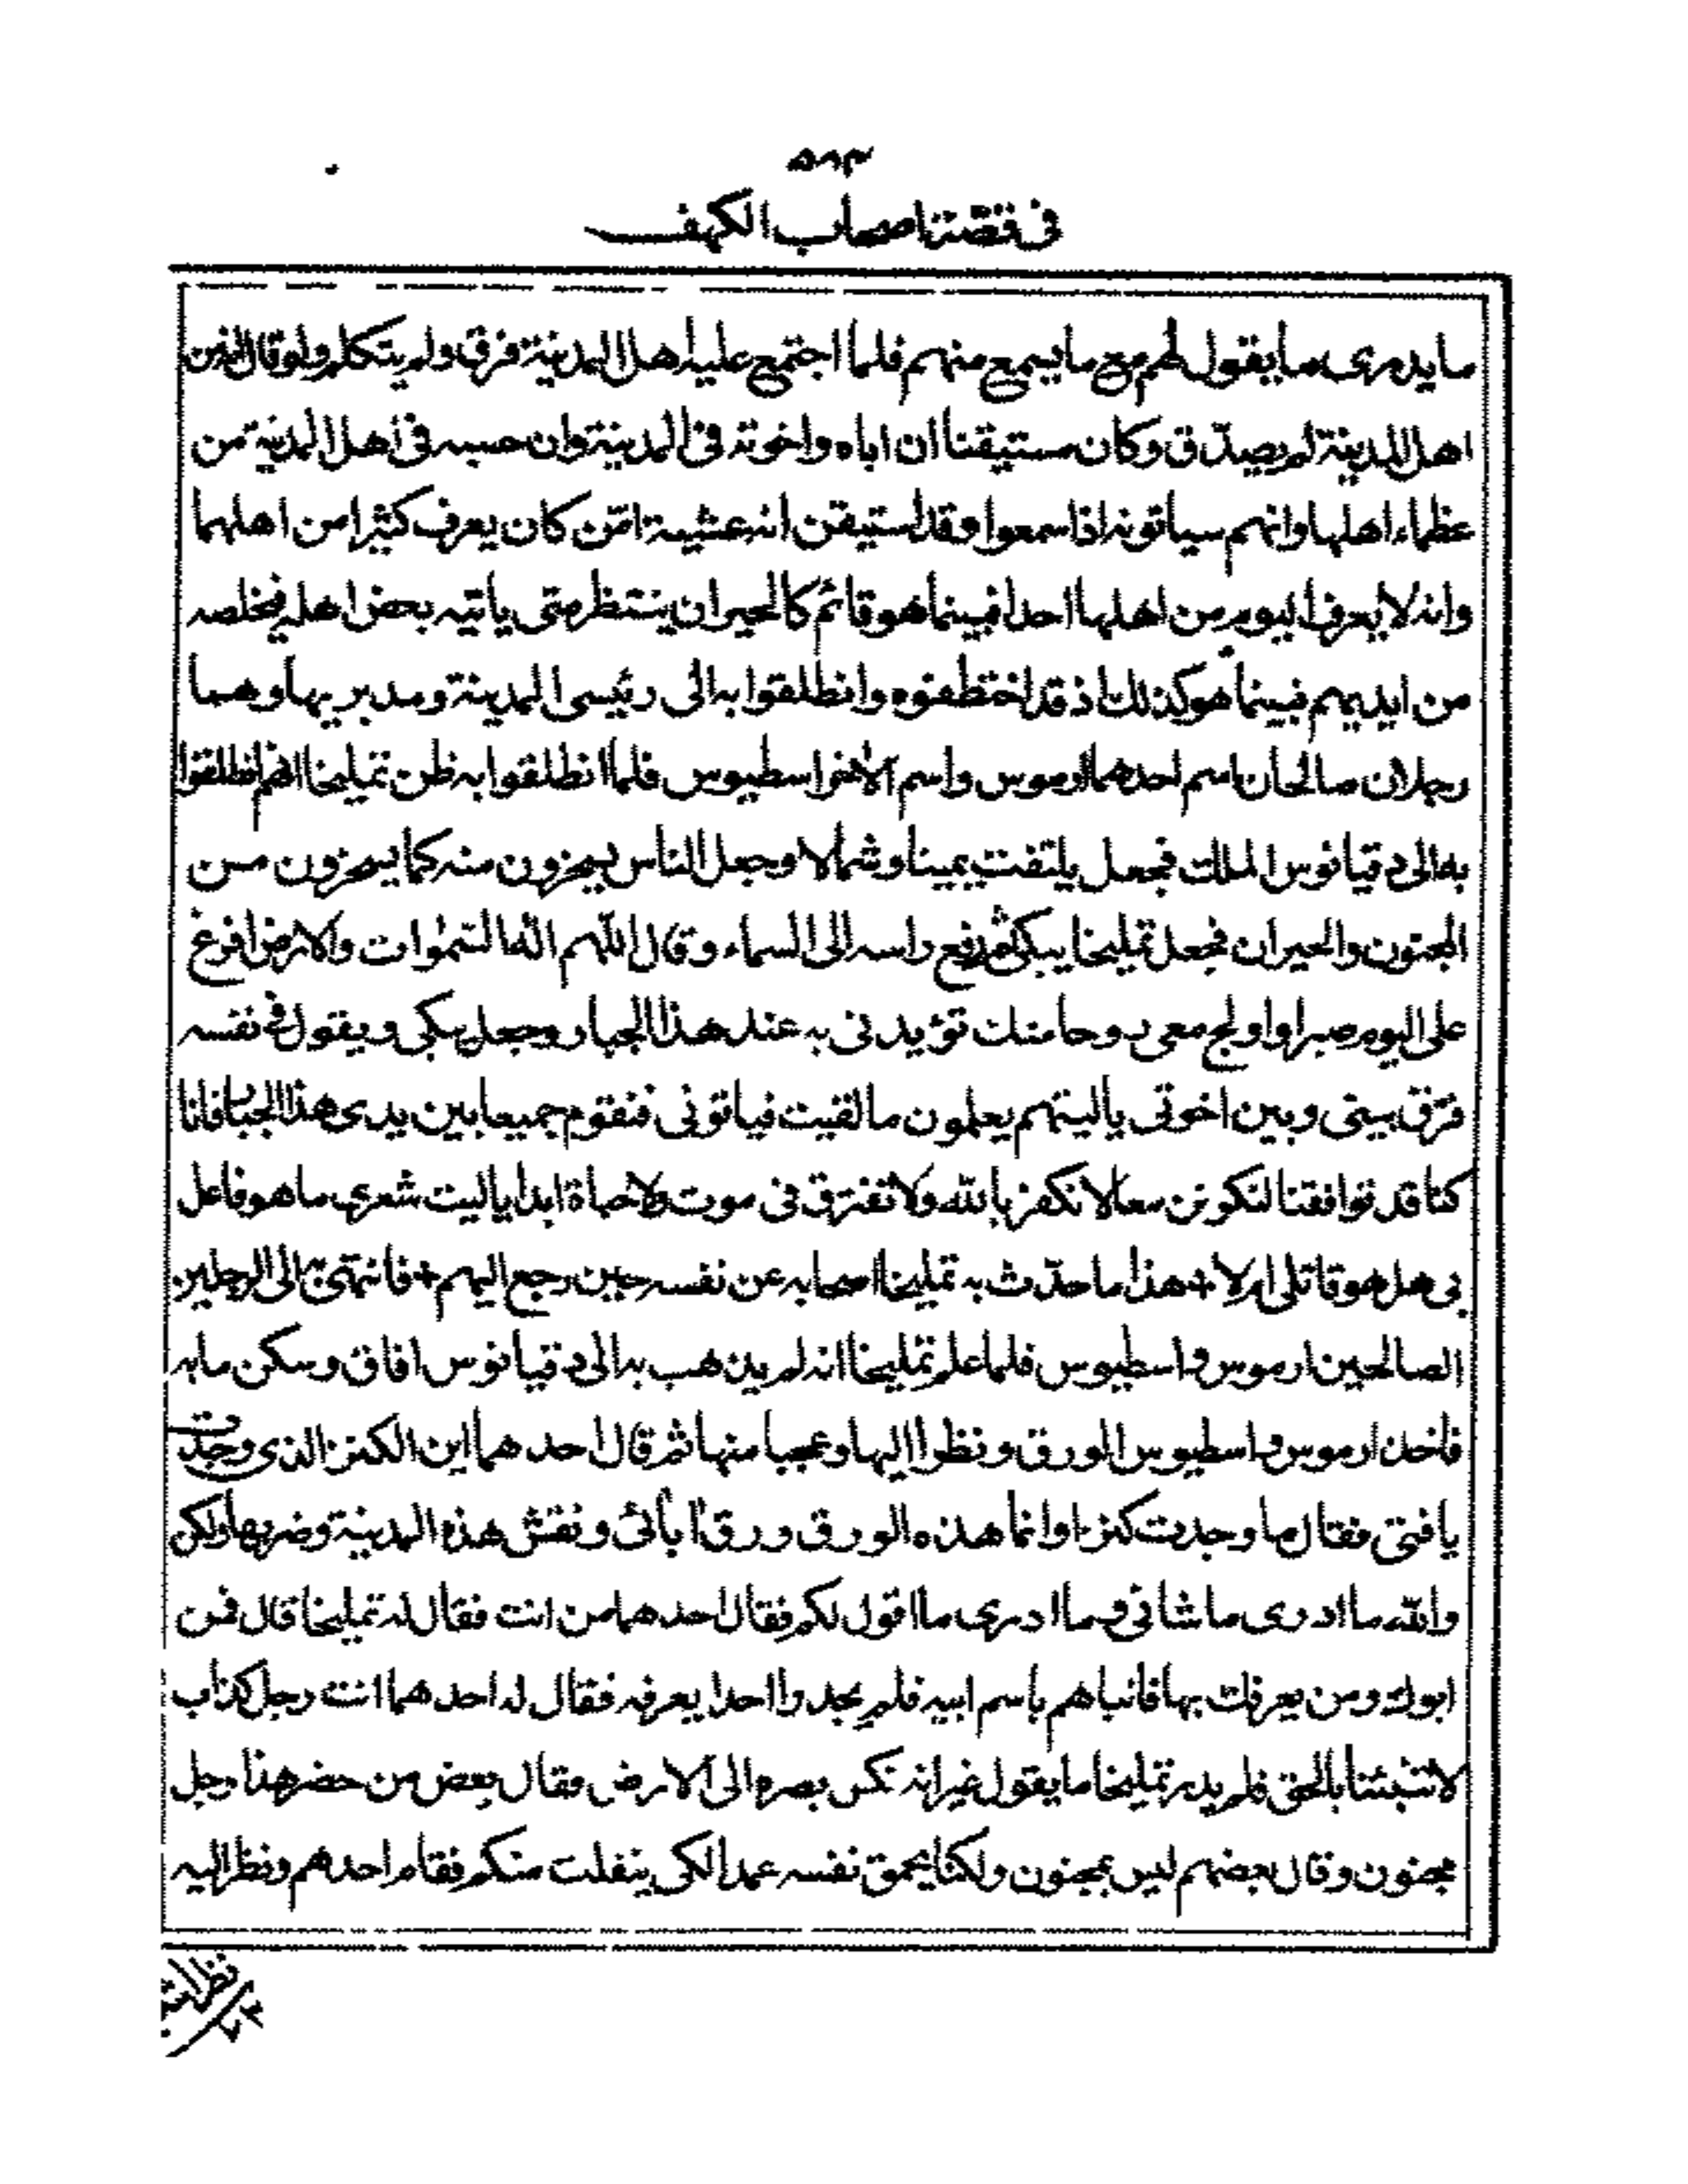 ٥٨٣
فى قصّة اصحاب الكهف
ما يدرى ما يقول لهم مع ما يسمع منهم فلما اجتمع عليه اهل المدينة فرق ولم يتكلم ولو قال انه من
اهل المدينة لم يصدّق وكان مستيقنا ان اباه واخوته فى المدينة وان حسبه فى اهل المدينة من
عظماء اهلها وانهم سياتونه اذا سمعوا وقد استيقن انه عشية امّن كان يعرف كثيرا من اهلها
وانه لا يعرف اليوم من اهلها احدا فبينما هو قائم كالحيران ينتظر متى ياتيه بعض اهله فيخلصه
من ايديهم فبينما هو كذلك اذ قد اختطفوه وانطلقوا به الى رئيسى المدينة ومدبريها وهما
رجلان صالحان اسم احدهما ارموس واسم الآخر اسطيوس فلما انطلقوا به ظن تمليخا انهم انطلقوا
به الى دقيانوس الملك فجعل يلتفت يمينا وشمالا وجعل الناس يسخرون منه كما يسخرون من
المجنون والحيران فجعل تمليخا يبكى ثم رفع راسه الى السماء وقال اللّهم اله السّمٰوات والارض افرغ
على اليوم صبرا واولج معى روحا منك تؤيدنى به عند هذا الجبار وجعل يبكى ويقول فى نفسه
فرّق بينى وبين اخوتى يا ليتهم يعلمون ما لقيت فياتونى فنقوم جميعا بين يدى هذا الجبار فانا
كنا قد توافقنا لنكونن معا لا نكفر بالله ولا نفترق فى موت ولا حياة ابدا يا ليت شعرى ما هو فاعل
بى هل هو قاتلى ام لا + هذا ما حدّث به تمليخا اصحابه عن نفسه حين رجع اليهم + فانتهى به الى الرجلين
الصالحين ارموس واسطيوس فلما علم تمليخا انه لم يذهب به الى دقيانوس افاق وسكن ما به
فاخذ ارموس واسطيوس الورق ونظرا اليها وعجبا منها ثم قال احدهما اين الكنز الذى وجدت
يا فتى فقال ما وجدت كنزا وانما هذه الورق ورق آبائى ونقش هذه المدينة وضربها ولكن
والله ما ادرى ما شانى وما ادرى ما اقول لكم فقال احدهما من انت فقال له تمليخا قال فمن
ابوك ومن يعرفك بها فانباهم باسم ابيه فلم يجدوا احدا يعرفه فقال له احدهما انت رجل كذاب
لا تنبئنا بالحق فلم يدر تمليخا ما يقول غير انه نكس بصره الى الارض فقال بعض من حضر هذا رجل
مجنون وقال بعضهم ليس بمجنون ولكنا يحمق نفسه عمدا لكى ينفلت منكم فقام احدهم ونظر اليه